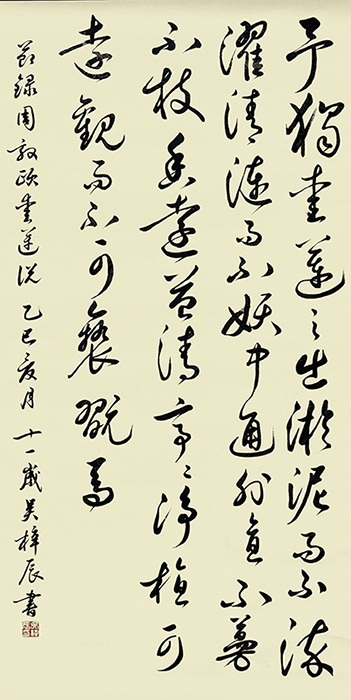 予獨愛蓮之出淤泥而不染
濯清漣而不妖中通外直不蔓
不枝香遠益清亭亭淨植可
遠觀而不可褻翫焉
節錄周敦頤愛蓮說 乙巳夏月 十一歲吳梓辰書